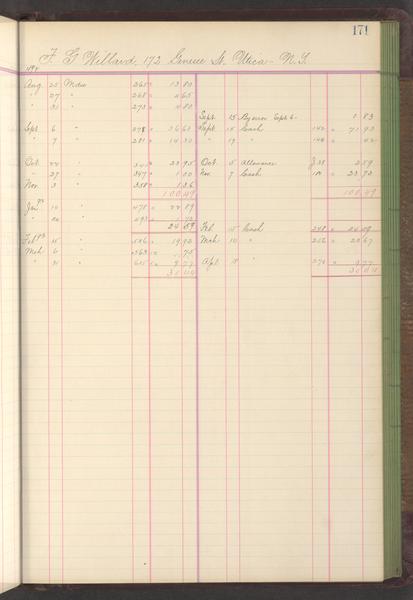 171
F. G Willard, 172 Genesee St. Utica - N.Y.
Aug 25 Mdse 265 13 80
" 27 " 268 4 65
" 31 " 273 4 80
Sept 15 By error Sept 6 - 1 83
Sept 6 " 278 36 60 Sept 15 Cash 142 71 93
" 7 " 281 14 30 " 19 " 148 42
Oct 22 " 23 95 Oct 5 Allowance 2 59
" 27 " 347 1 00 Nov 7 Cash 23 73
Nov 3 " 358 1 36
100 49 100,49
Jan 10 " 478 22 89
" 493 1 70
24 59 Feb 15 Cash 248 24 59
Feb 15 " 546 19 92 Mch 10 " 256 20 67
Mch 6 " 563 75
" 31 " 9 77 Apl 18 " 9 77
30 44 30 44